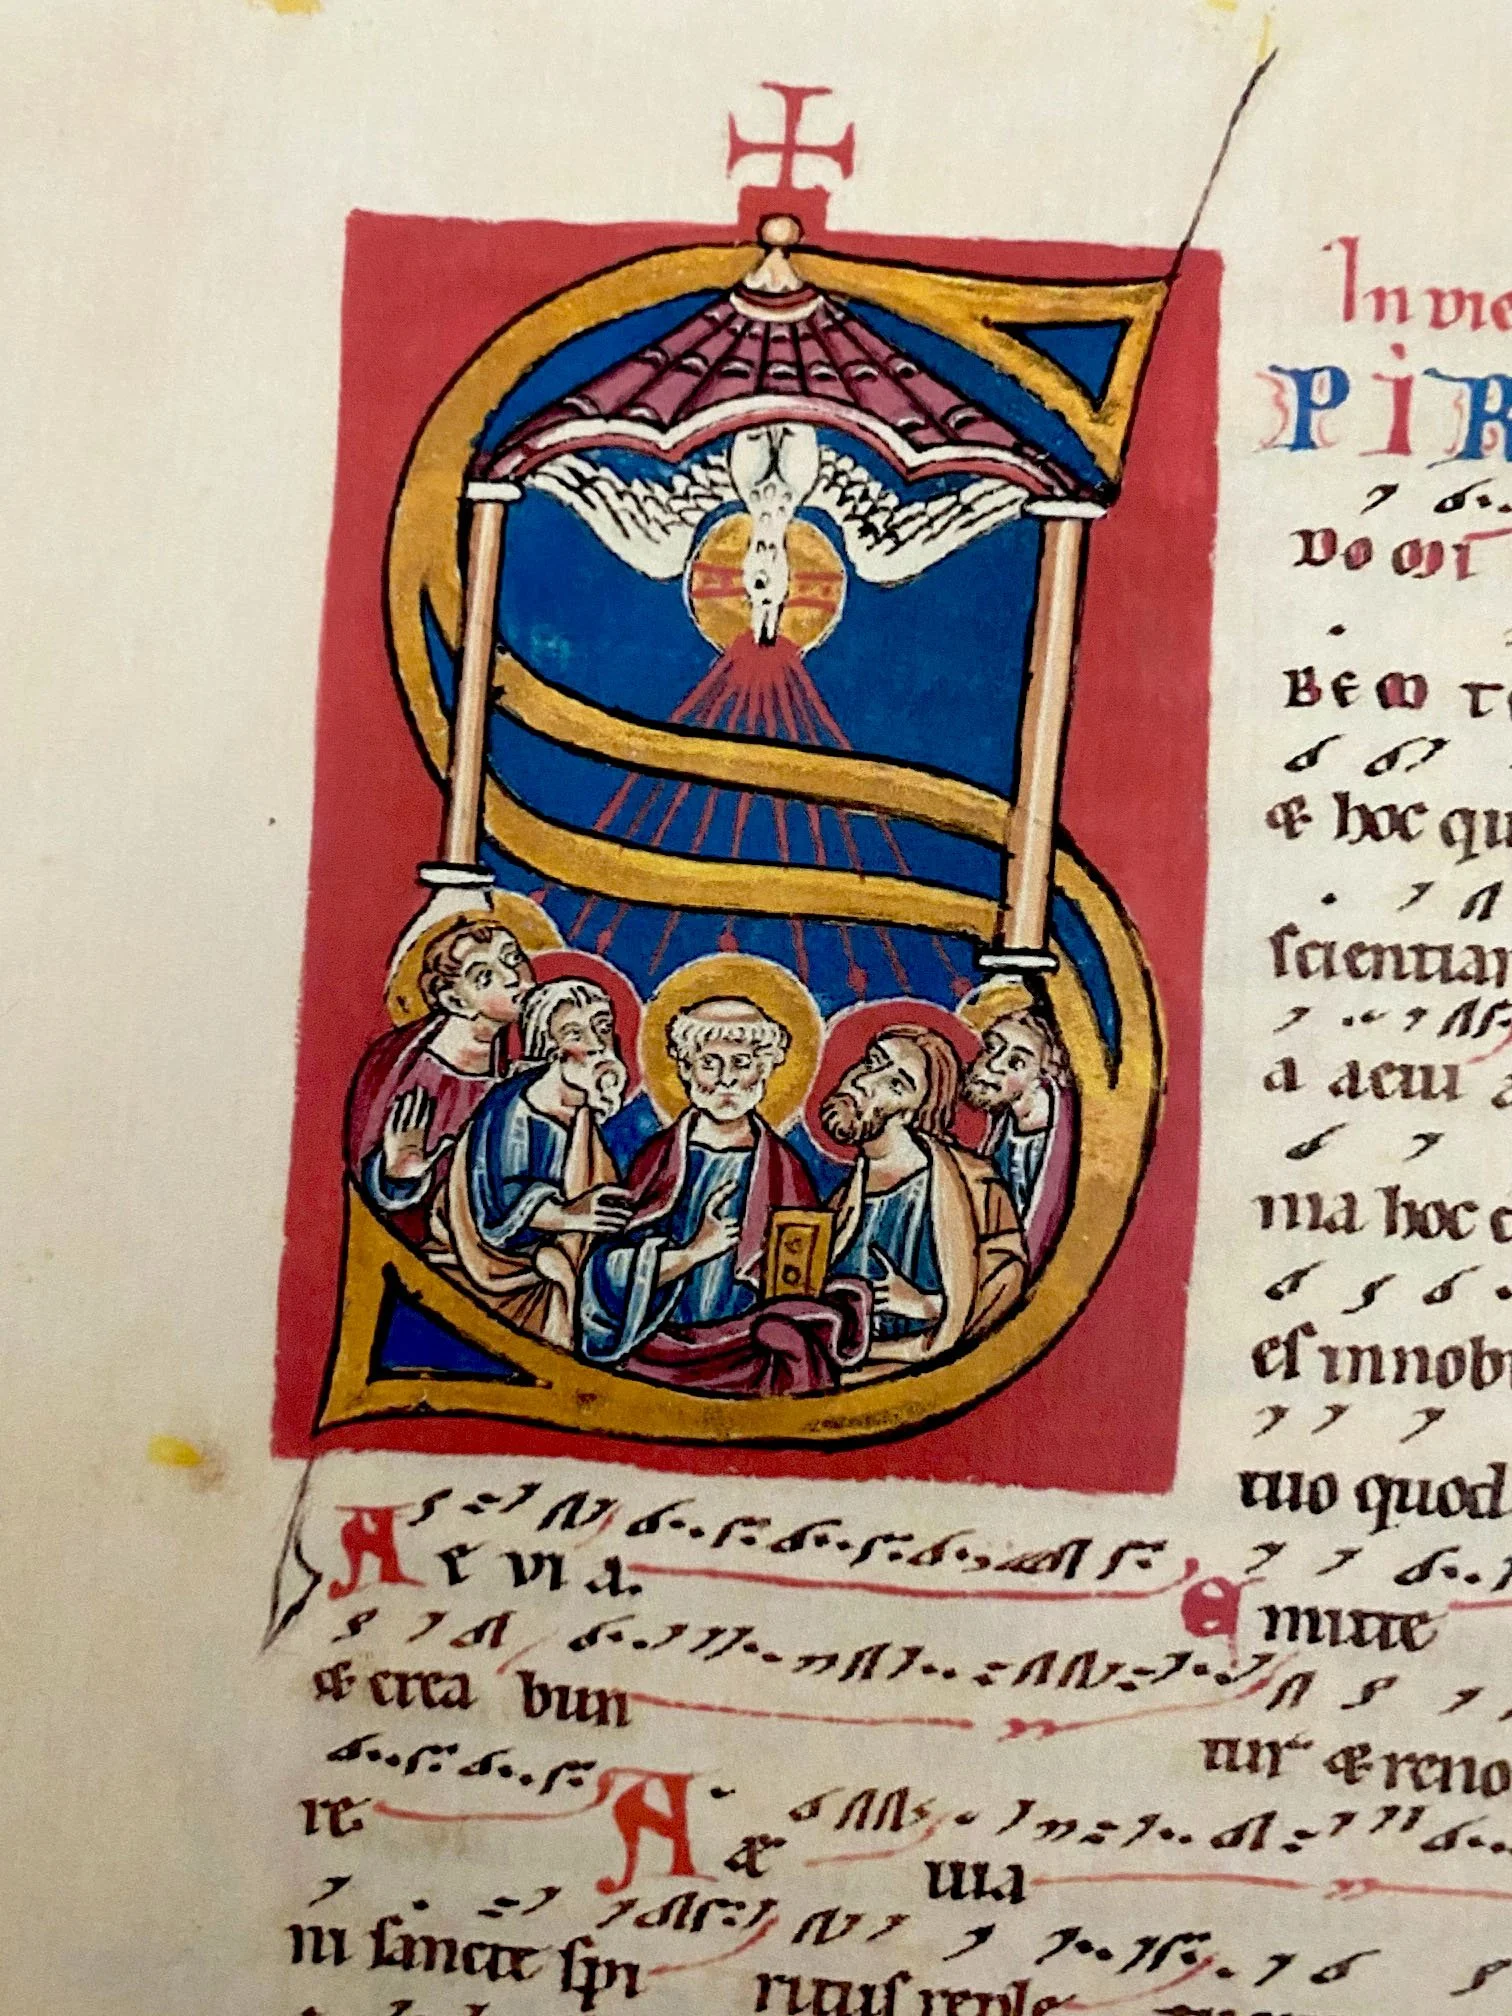 S
In die
PIR
DOMI
BEM T
& hoc qu
scientiam
a aeuia
ma hoc e
es innobi
tuo quod
A e vi a. Emitte
& crea bun tur & reno
re A æ uia
ni sancte spi ritus reple